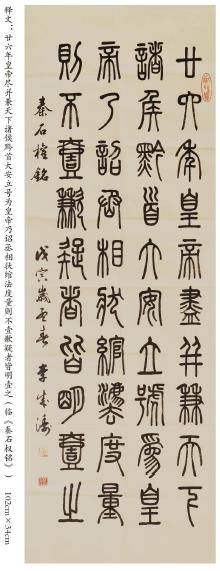 廿六年皇帝盡并兼天下
諸侯黔首大安立號為皇
帝乃詔丞相狀綰灋度量
則不壹歉疑者皆明壹之
秦石權銘
戊寅歲孟春 李成海
释文：廿六年皇帝尽并兼天下诸侯黔首大安立号为皇帝乃诏丞相状绾法度量则不壹歉疑者皆明壹之（临《秦石权铭》） 102cm×34cm